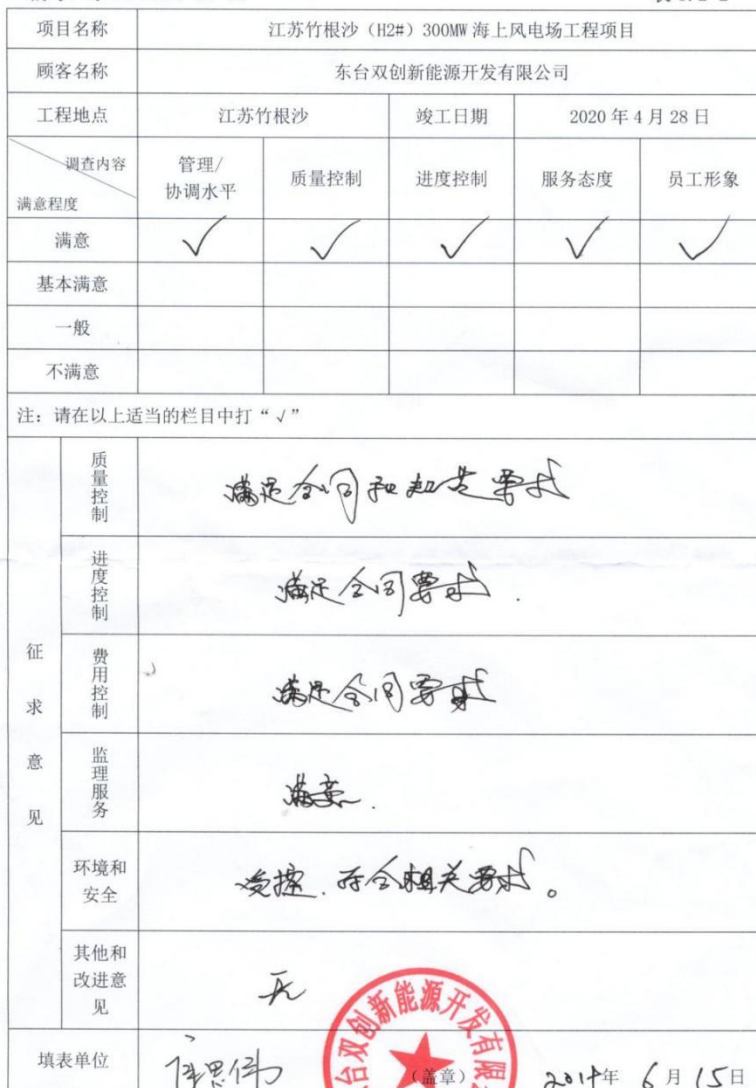 项目名称 江苏竹根沙（H2#）300MW 海上风电场工程项目
顾客名称 东台双创新能源开发有限公司
工程地点 江苏竹根沙 竣工日期 2020 年 4 月 28 日
调查内容
满意程度
管理/
协调水平 质量控制 进度控制 服务态度 员工形象
满意 √ √ √ √ √
基本满意
一般
不满意
注：请在以上适当的栏目中打“√”
征求意见
质量控制 满足合同和规范要求
进度控制 满足合同要求.
费用控制 满足合同要求
监理服务 满意.
环境和
安全 受控.符合相关要求。
其他和
改进意
见 无
填表单位 （盖章） 年 6 月 15 日
台双创新能源开发有限